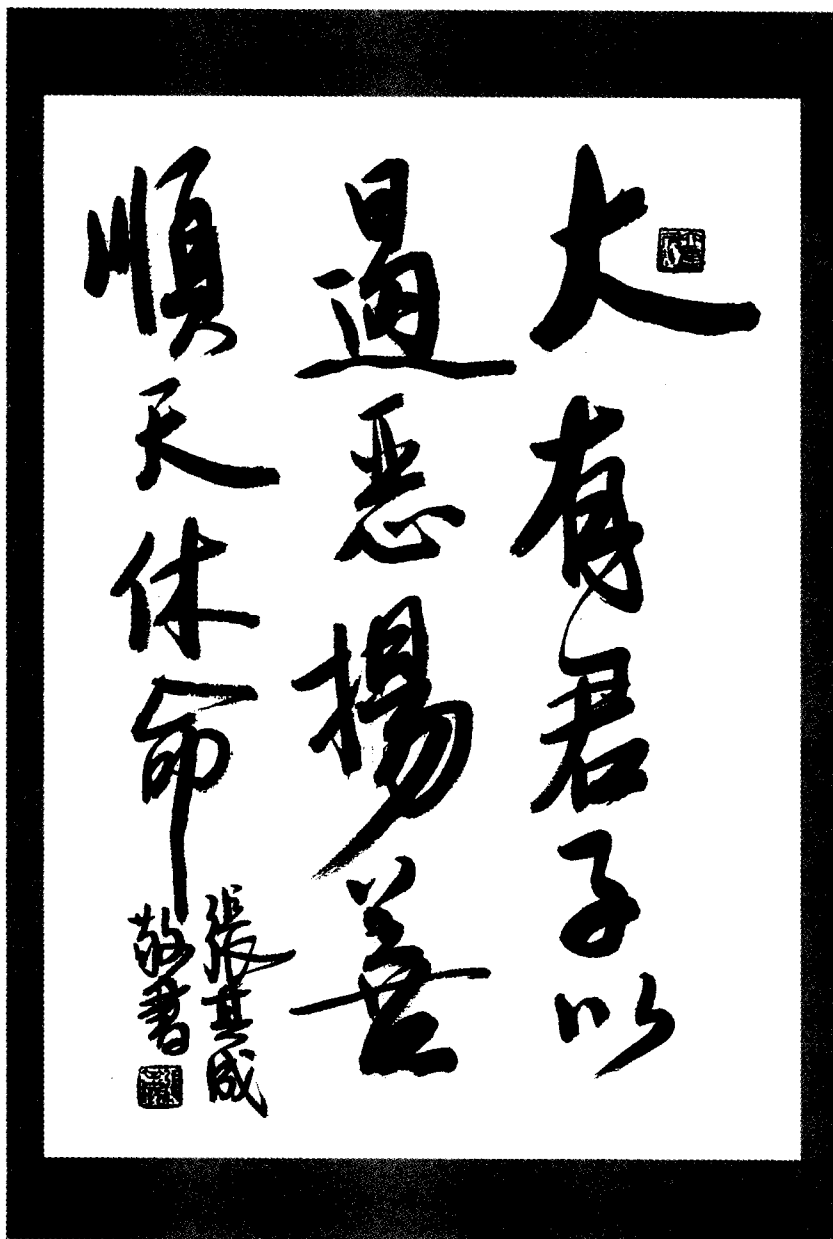 大有君子以
遏恶揚善
順天休命
張其成
敬書